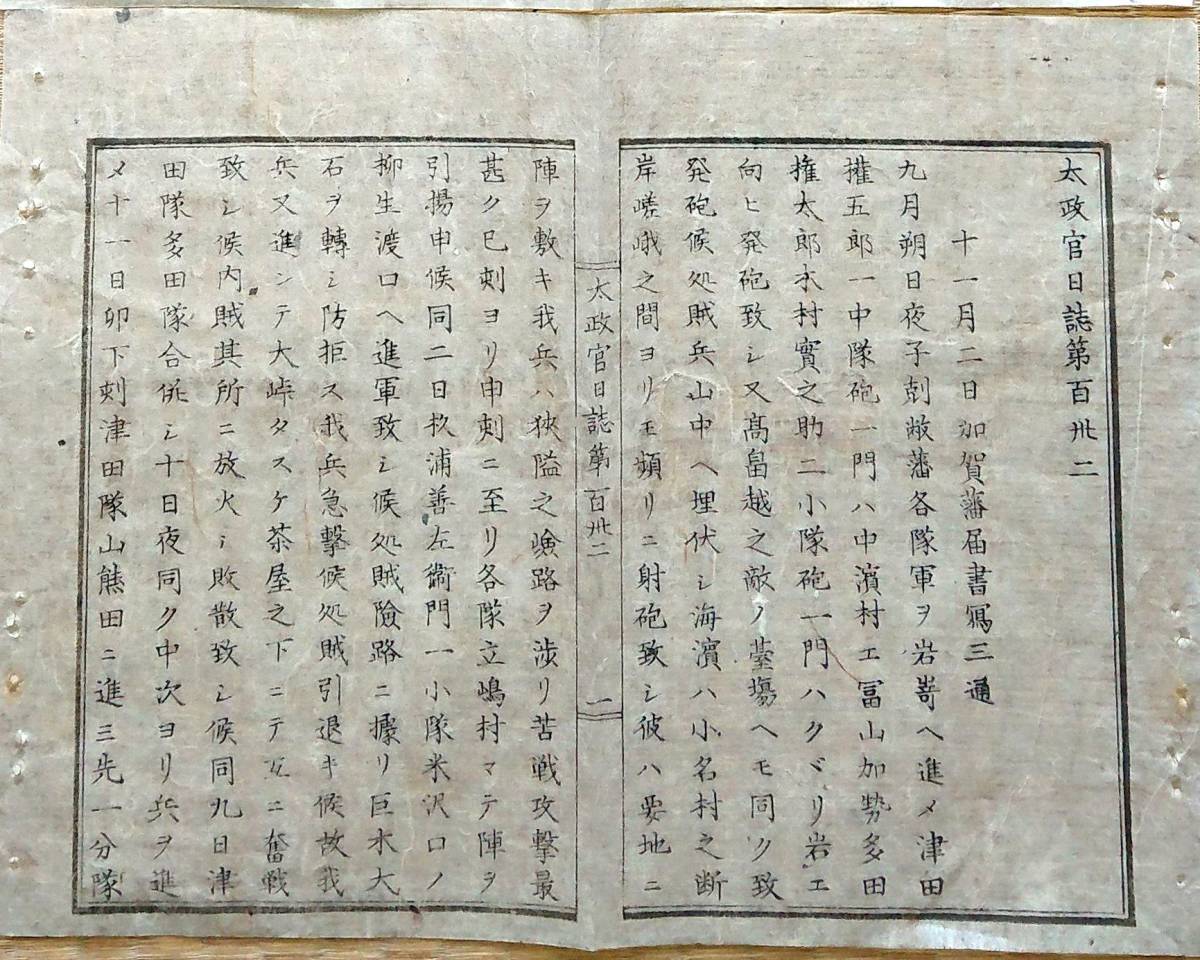 太政官日誌第百卅二
十一月二日加賀藩届書寫三通
九月朔日夜子刻敝藩各隊軍ヲ岩嵜ヘ進メ津田
権五郎一中隊砲一門ハ中濱村エ冨山加勢多田
権太郎水村實之助二小隊砲一門ハクヾリ岩エ
向ヒ発砲致シ又髙畠越之敵ノ䑓塲ヘモ同ク致
発砲候処賊兵山中ヘ埋伏シ海濱ハ小名村之断
岸嵯峨之間ヨリモ頻リニ射砲致シ彼ハ要地ニ
太政官日誌第百卅二
一
陣ヲ敷キ我兵ハ狹隘之嶮路ヲ渉リ苦戦攻撃最
甚ク巳刻ヨリ申刻ニ至リ各隊立嶋村マテ陣ヲ
引揚申候同二日杉浦善左衛門一小隊米沢口ノ
柳生渡口ヘ進軍致シ候処賊險路ニ據リ巨木大
石ヲ轉シ防拒ス我兵急撃候処賊引退キ候故我
兵又進ンテ大峠タスケ茶屋之下ニテ互ニ奮戦
致シ候内賊其所ニ放火シ敗散致シ候同九日津
田隊多田隊合併シ十日夜同ク中次ヨリ兵ヲ進
メ十一日卯下刻津田隊山熊田ニ進三先一分隊